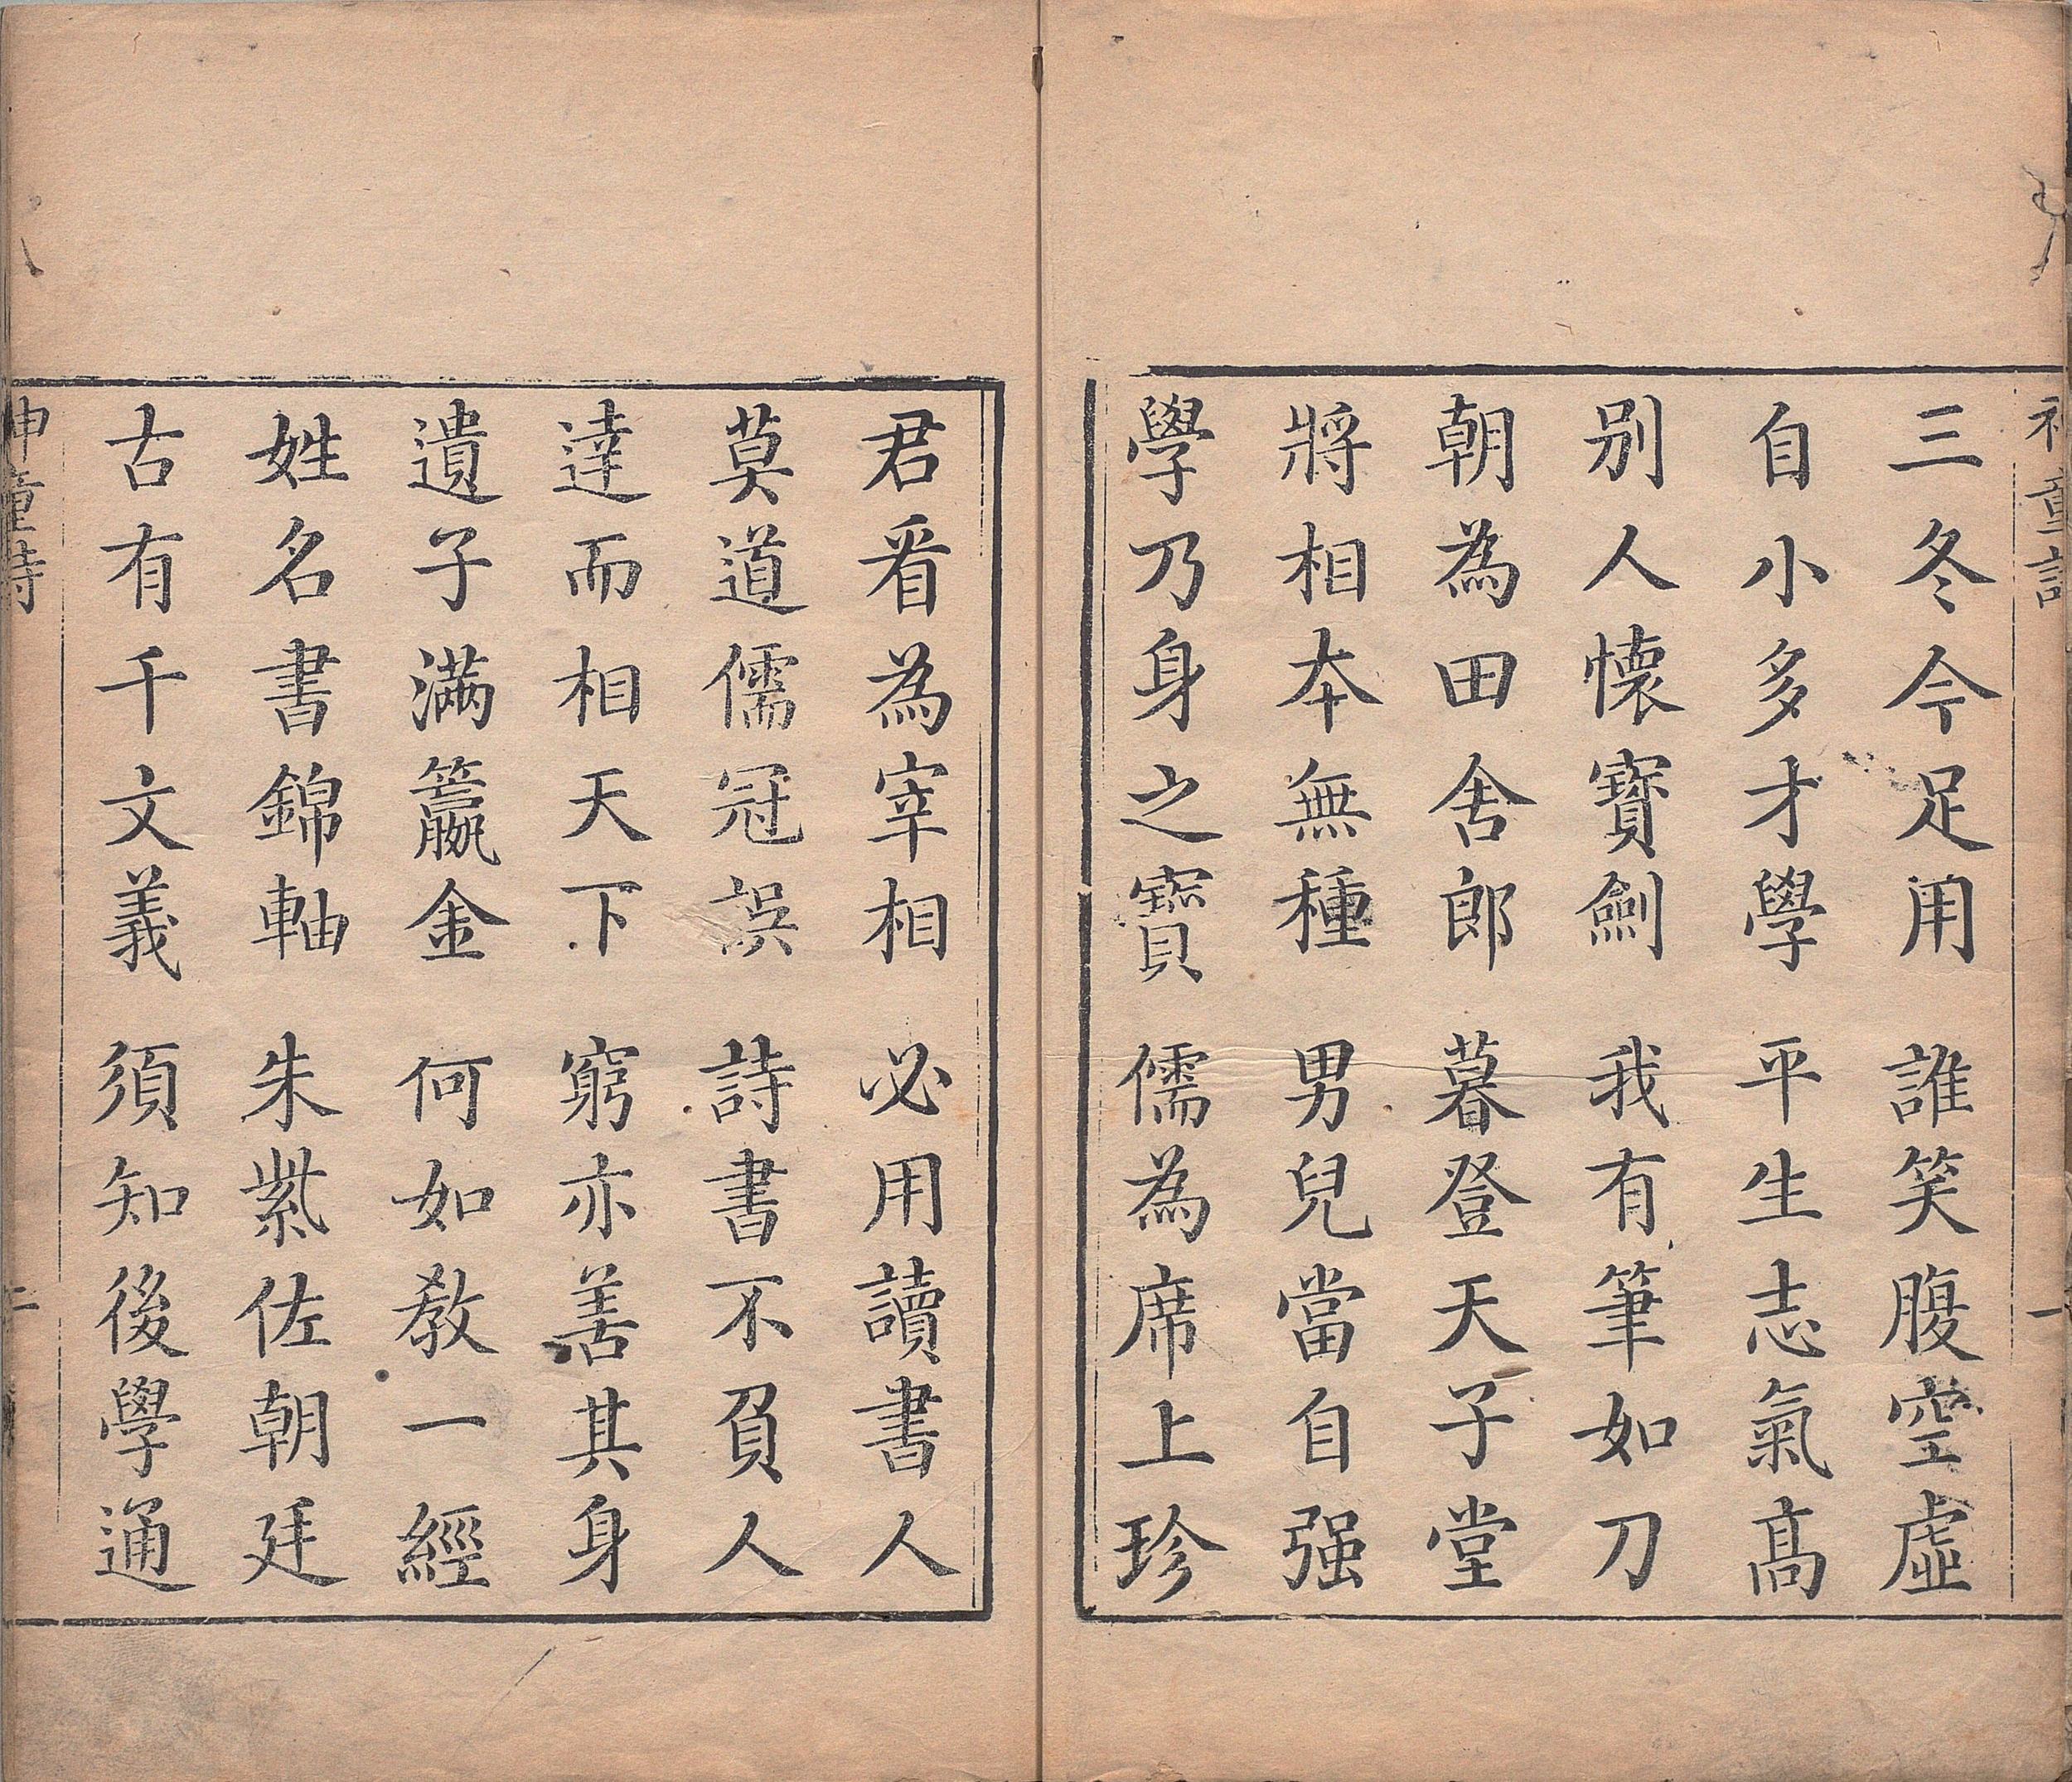 神童詩
一
三冬今足用 誰笑腹空虛
自小多才學 平生志氣高
别人懷寶劍 我有筆如刀
朝為田舍郎 暮登天子堂
將相本無種 男兒當自强
學乃身之寶 儒為席上珍
君看為宰相 必用讀書人
莫道儒冠誤 詩書不負人
達而相天下 窮亦善其身
遺子滿籯金 何如教一經
姓名書錦軸 朱紫佐朝廷
古有千文義 須知後學通
神童詩
二